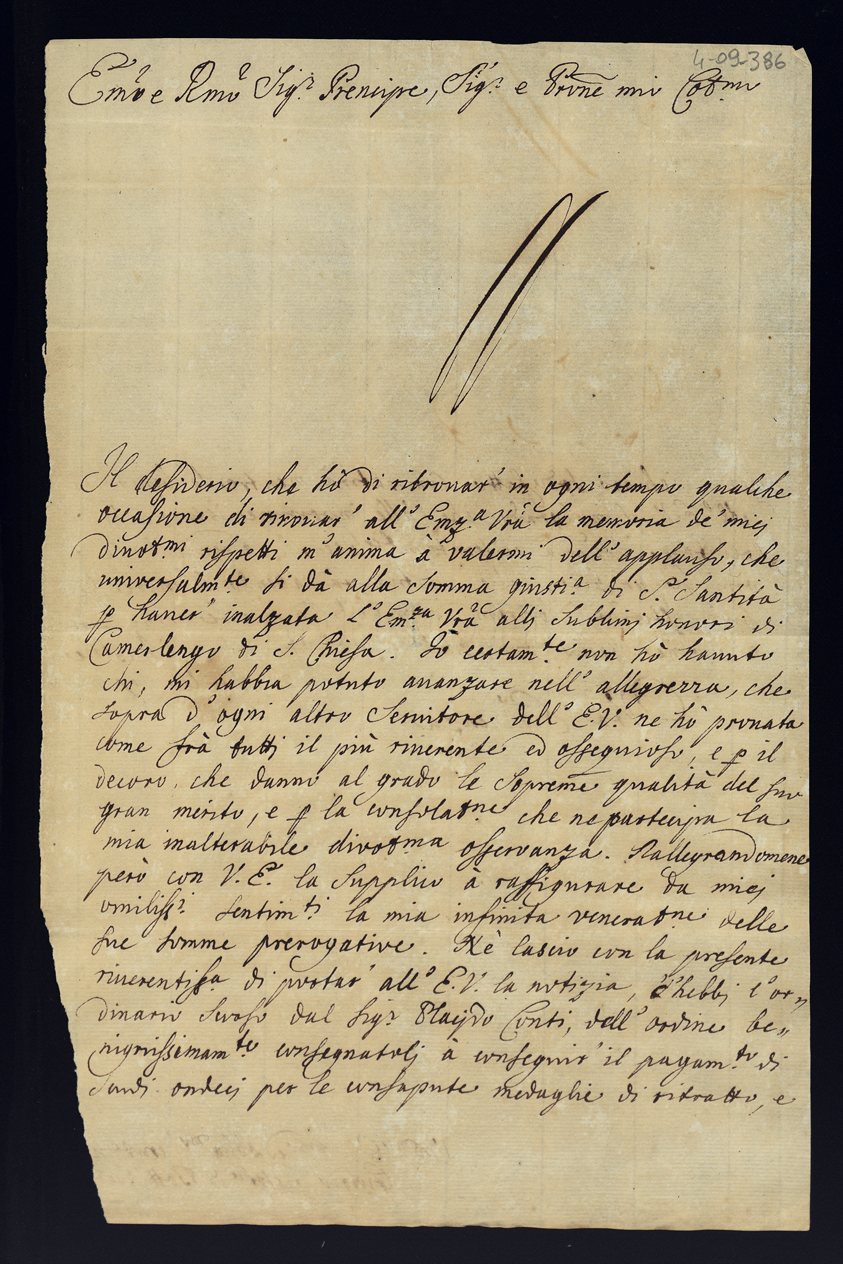 4-09-386
Em̃o e Rmõ Sig.r Prencipe, Sig.r e Prone mio Col.mo
Il desiderio, che hò di ritrouar' in ogni tempo qualche
occasione di rinouar' all'Emz.a Vrã la memoria de' miei
diuot.mi rispetti m'anima à valermi dell'applauso, che
universalm.te si dà alla somma giusti.a di S.a Santità
ꝑ hauer' inalzata l'Em.za Vrã alli sublimj honori di
Camerlengo di S. Chiesa. Iò certam.te non hò hauuto
chi, mi habbia potuto auanzare nell'allegrezza, che
sopra d'ogni altro Seruitore dell'E.V. ne hò prouata
come frà tutti il più riuerente ed ossequioso, e ꝑ il
decoro, che danno al grado le supreme qualità del suo
gran merito, e ꝑ la consolat.ne che ne partecipa la
mia inalterabile diuot.ma osseruanza. Rallegrandomene
però con V.E. la supplico à raffigurare da miei
vmiliss.i sentim.ti la mia infinita venerat.ne delle
sue somme prerogative. Nè lascio con la presente
riuerentiss.a di portar' all'E.V. la notizia, c'hebbj l'or„
dinario scorso dal Sig.r Placido Conti, dell'ordine be„
nignissimam.te consegnatolj à conseguir' il pagam.to di
Scudi ondeci per le consapute medaglie di ritratto, e